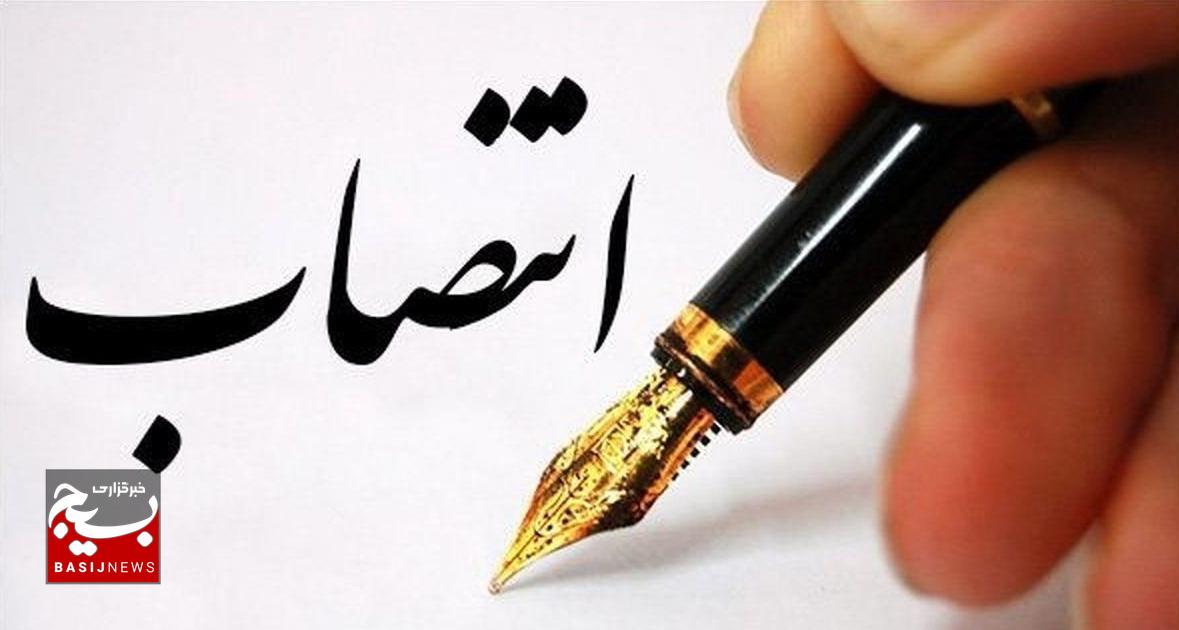 انتصاب
خبرگزاری
بسیج
BASIJNEWS